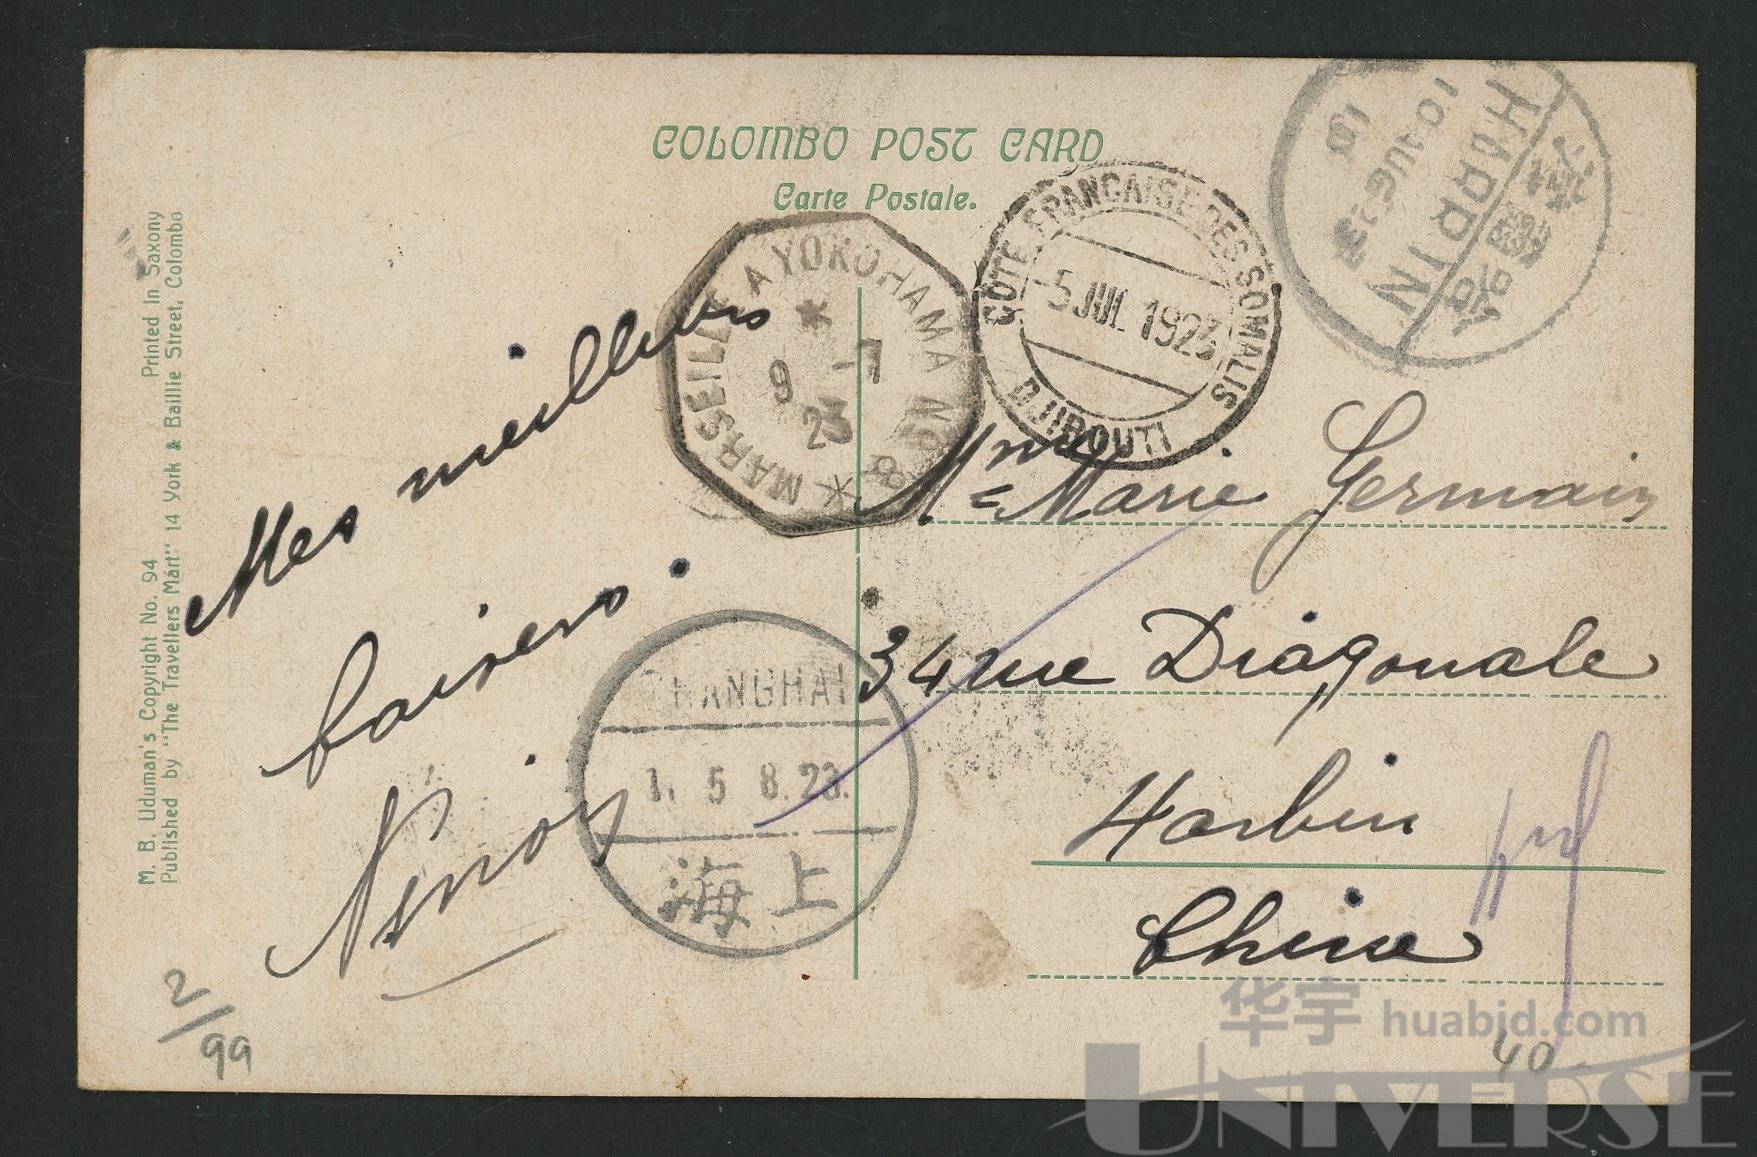 COLOMBO POST CARD
Carte Postale.
M. B. Uduman's Copyright No. 94 Printed in Saxony
Published by "The Travellers Mart" 14 York & Baillie Street, Colombo
MARSEILLE A YOKOHAMA No 8
9 -7
23
COTE FRANCAISE DES SOMALIS
-5 JUL 1923
DJIBOUTI
HARBIN
10 AUG 23
Mes meilleurs
baisers.
Mme Marie Germain
34 rue Diagonale
Harbin
Chine
SHANGHAI
1. 5 8. 23.
海上
2/99
40-
华宇 huabid.com
UNIVERSE